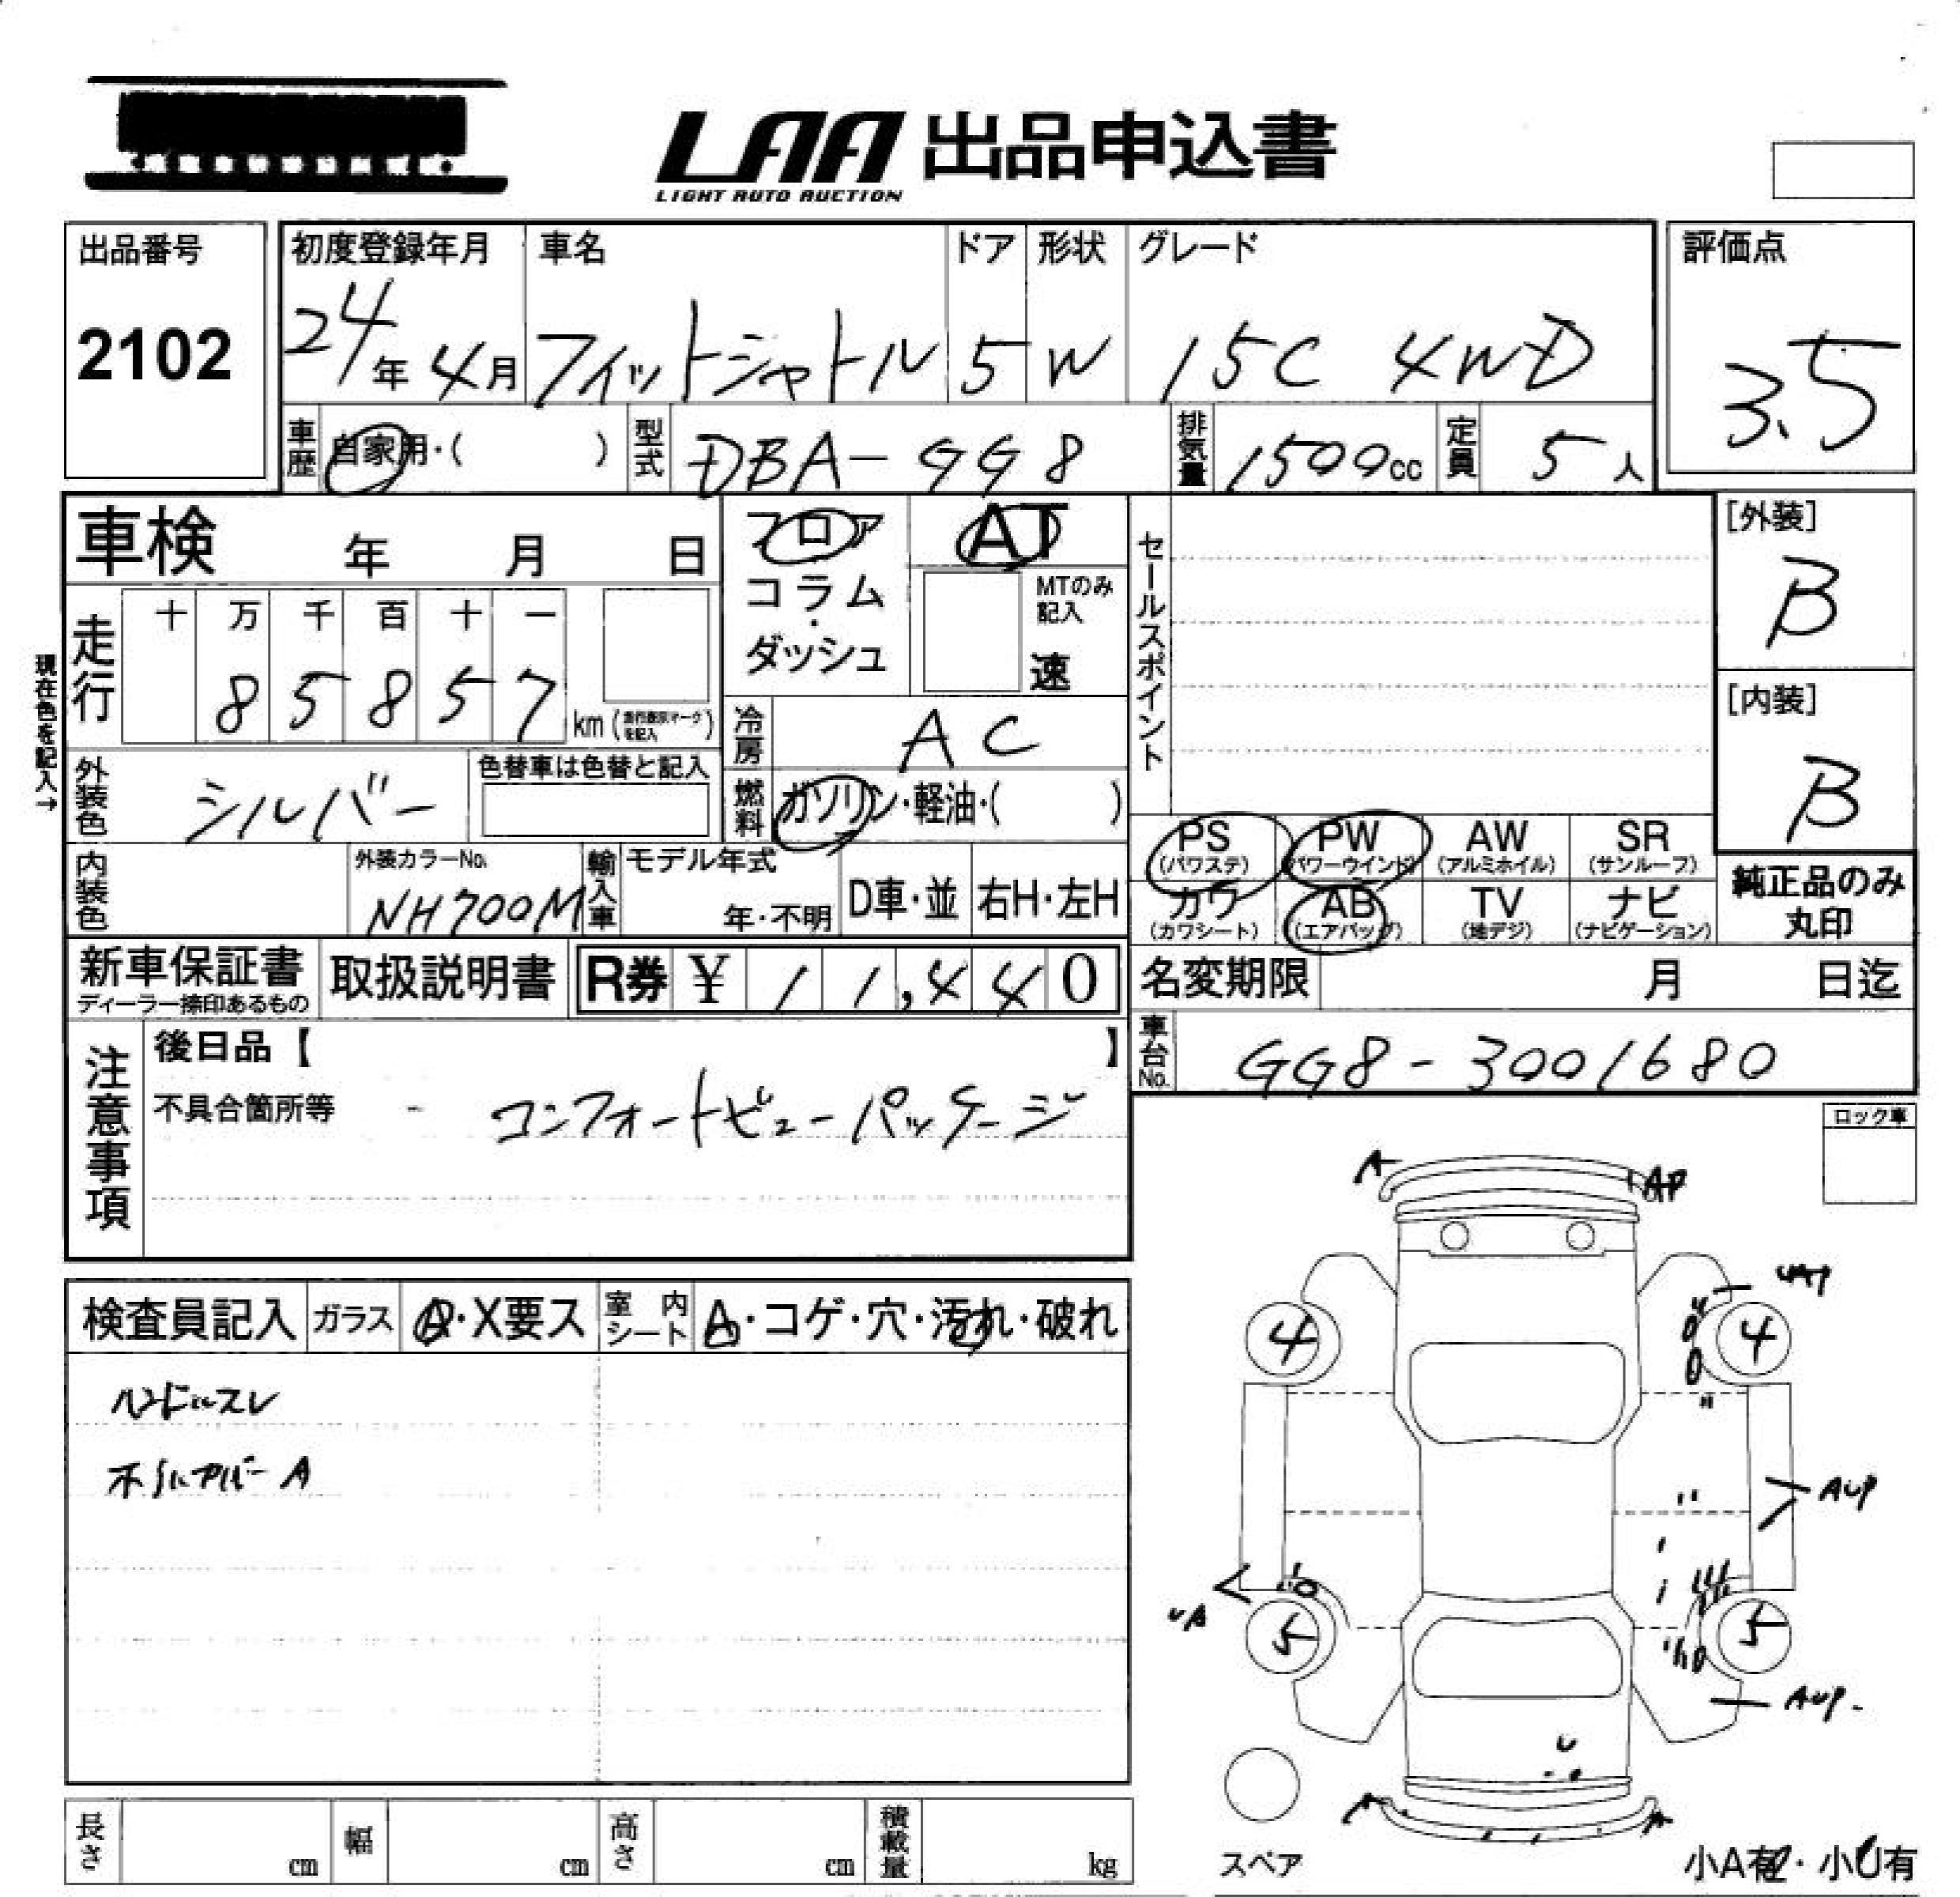 LAA 出品申込書
LIGHT AUTO AUCTION
出品番号
2102
初度登録年月 車名 ドア 形状 グレード
24年4月 フィットシャトル 5 W 15C 4WD
評価点
3.5
車歴 自家用・( ) 型式 DBA-GG8 排気量 1500cc 定員 5人
車検 年 月 日
フロア AT
コラム・ダッシュ
MTのみ記入
速
セールスポイント
[外装]
B
[内装]
B
現在色を記入→
走行
十 万 千 百 十 一
8 5 8 5 7 km
(走行表示マークを記入)
冷房 AC
外装色 シルバー
色替車は色替と記入
燃料 ガソリン・軽油・( )
PS (パワステ) PW (パワーウインド) AW (アルミホイル) SR (サンルーフ)
カワ (カワシート) AB (エアバッグ) TV (地デジ) ナビ (ナビゲーション)
純正品のみ丸印
内装色
外装カラーNo.
NH700M
輸入車 モデル年式
年・不明 D車・並 右H・左H
新車保証書
ディーラー捺印あるもの
取扱説明書
R券 ¥ 11,440
名変期限 月 日迄
車台No. GG8-3001680
注意事項
後日品【 】
不具合箇所等 - コンフォートビューパッケージ
ロック車
検査員記入 ガラス A・X要ス 室内シート A・コゲ・穴・汚れ・破れ
ハンドルスレ
ホイルカバーA
A
AP
UAP
4 4
AUP
UA
5 5
AUP
U
A A
スペア
小A有・小U有
長さ cm 幅 cm 高さ cm 積載量 kg